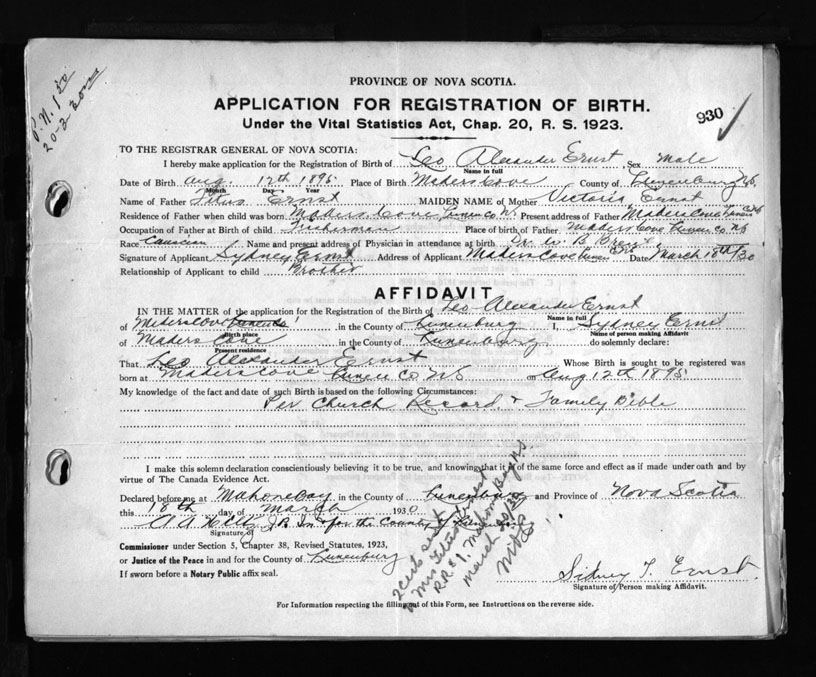 PROVINCE OF NOVA SCOTIA.
APPLICATION FOR REGISTRATION OF BIRTH.
Under the Vital Statistics Act, Chap. 20, R. S. 1923.
930
P.N. 1 50
20-3-30
TO THE REGISTRAR GENERAL OF NOVA SCOTIA:
I hereby make application for the Registration of Birth of Leo Alexander Ernst, Sex Male
Name in full
Date of Birth Aug. 12th 1895 Place of Birth Maders Cove County of Lunenburg NS.
Month Day Year
Name of Father Titus Ernst MAIDEN NAME of Mother Victoria Ernst
Residence of Father when child was born Maders Cove Lunen Co N. Present address of Father Maders Cove Lunen Co NS
Occupation of Father at Birth of child Fisherman Place of birth of Father Maders Cove Lunen Co. NS
Race Causcian Name and present address of Physician in attendance at birth Dr. W. B.
Signature of Applicant Sydney Ernst Address of Applicant Maders Cove Lunen Co NS Date March 18th/30
Relationship of Applicant to child Brother
AFFIDAVIT
IN THE MATTER of the application for the Registration of the Birth of Leo Alexander Ernst
Name in full
of Maders Cove in the County of Lunenburg I, Sydney Ernst
Birth place Name of person making Affidavit
of Maders Cove in the County of Lunenburg do solemnly declare:
Present residence
That Leo Alexander Ernst Whose Birth is sought to be registered was
born at Maders Cove Lunen Co NS on Aug 12th 1895
My knowledge of the fact and date of such Birth is based on the following Circumstances:
Per Church Record & Family Bible
I make this solemn declaration conscientiously believing it to be true, and knowing that it is of the same force and effect as if made under oath and by
virtue of The Canada Evidence Act.
Declared before me at Mahone Bay in the County of Lunenburg and Province of Nova Scotia
this 18th day of March 1930
J.P. In & for the County of Lunenburg
Signature of
Commissioner under Section 5, Chapter 38, Revised Statutes, 1923,
or Justice of the Peace in and for the County of Lunenburg
If sworn before a Notary Public affix seal.
2 Certs sent
Mrs Titus Ernst
R.R. #1. Mahone Bay NS
March
Sidney T. Ernst.
Signature of Person making Affidavit.
For Information respecting the filling out of this Form, see Instructions on the reverse side.